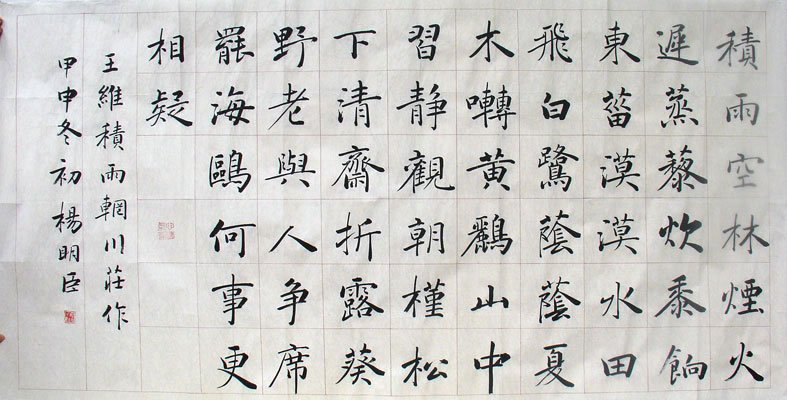 積雨空林煙火
遲蒸藜炊黍餉
東菑漠漠水田
飛白鷺蔭蔭夏
木囀黄鸝山中
習静觀朝槿松
下清齋折露葵
野老與人争席
罷海鷗何事更
相疑
王維積雨輞川莊作
甲申冬初楊明臣